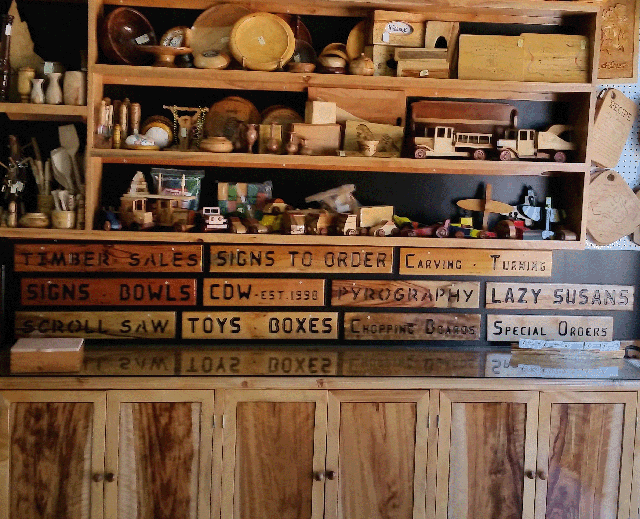 TIMBER SALES SIGNS TO ORDER CARVING - TURNING
SIGNS - BOWLS CDW - EST. 1998 PYROGRAPHY LAZY SUSANS
SCROLL SAW TOYS BOXES CHOPPING BOARDS SPECIAL ORDERS